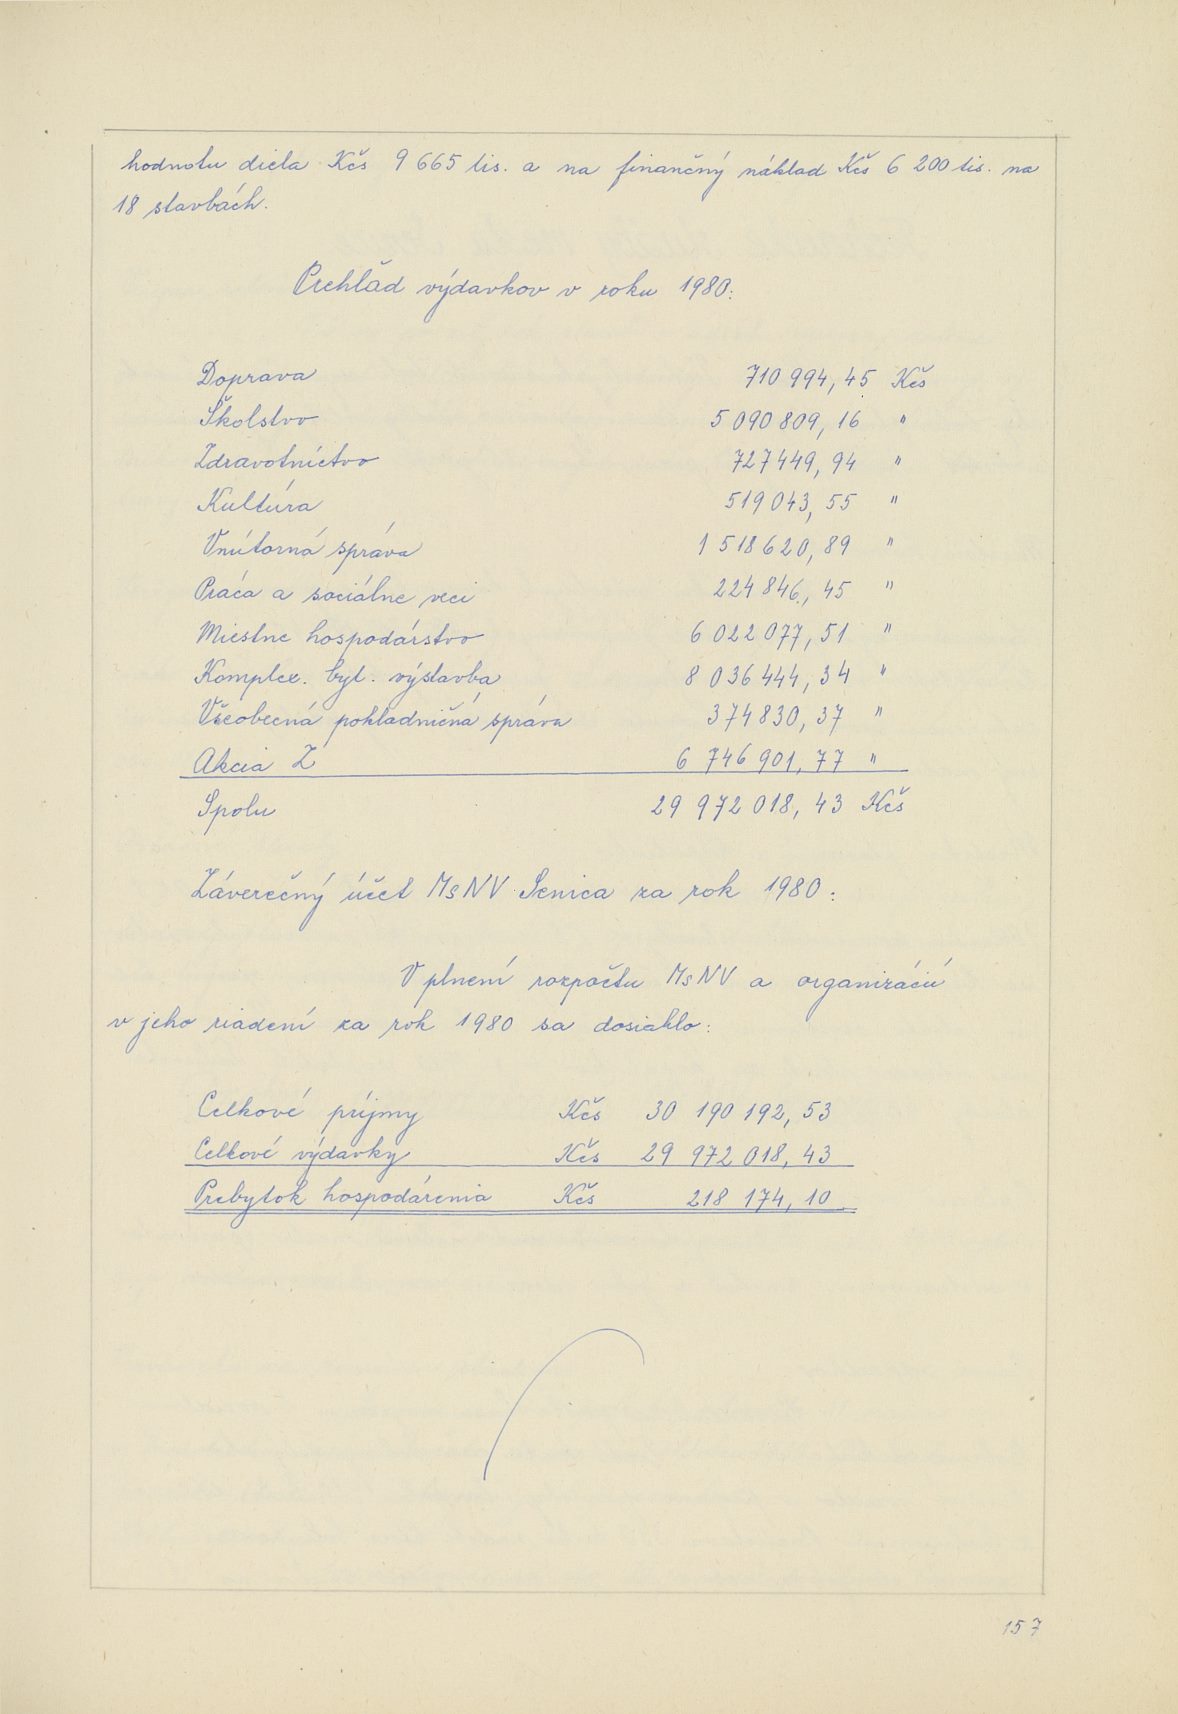 hodnotu diela Kčs 9 665 tis. a na finančný náklad Kčs 6 200 tis. na
18 stavbách.
Prehľad výdavkov v roku 1980:
Doprava 710 994,45 Kčs
Školstvo 5 090 809,16 "
Zdravotníctvo 727 449,94 "
Kultúra 519 043,55 "
Vnútorná správa 1 518 620,89 "
Práca a sociálne veci 224 846,45 "
Miestne hospodárstvo 6 022 077,51 "
Komplex. byt. výstavba 8 036 444,34 "
Všeobecná pokladničná správa 374 830,37 "
Akcia Z 6 746 901,77 "
Spolu 29 972 018,43 Kčs
Záverečný účet MsNV Senica za rok 1980:
V plnení rozpočtu MsNV a organizácií
v jeho riadení za rok 1980 sa dosiahlo:
Celkové príjmy Kčs 30 190 192,53
Celkové výdavky Kčs 29 972 018,43
Prebytok hospodárenia Kčs 218 174,10
157